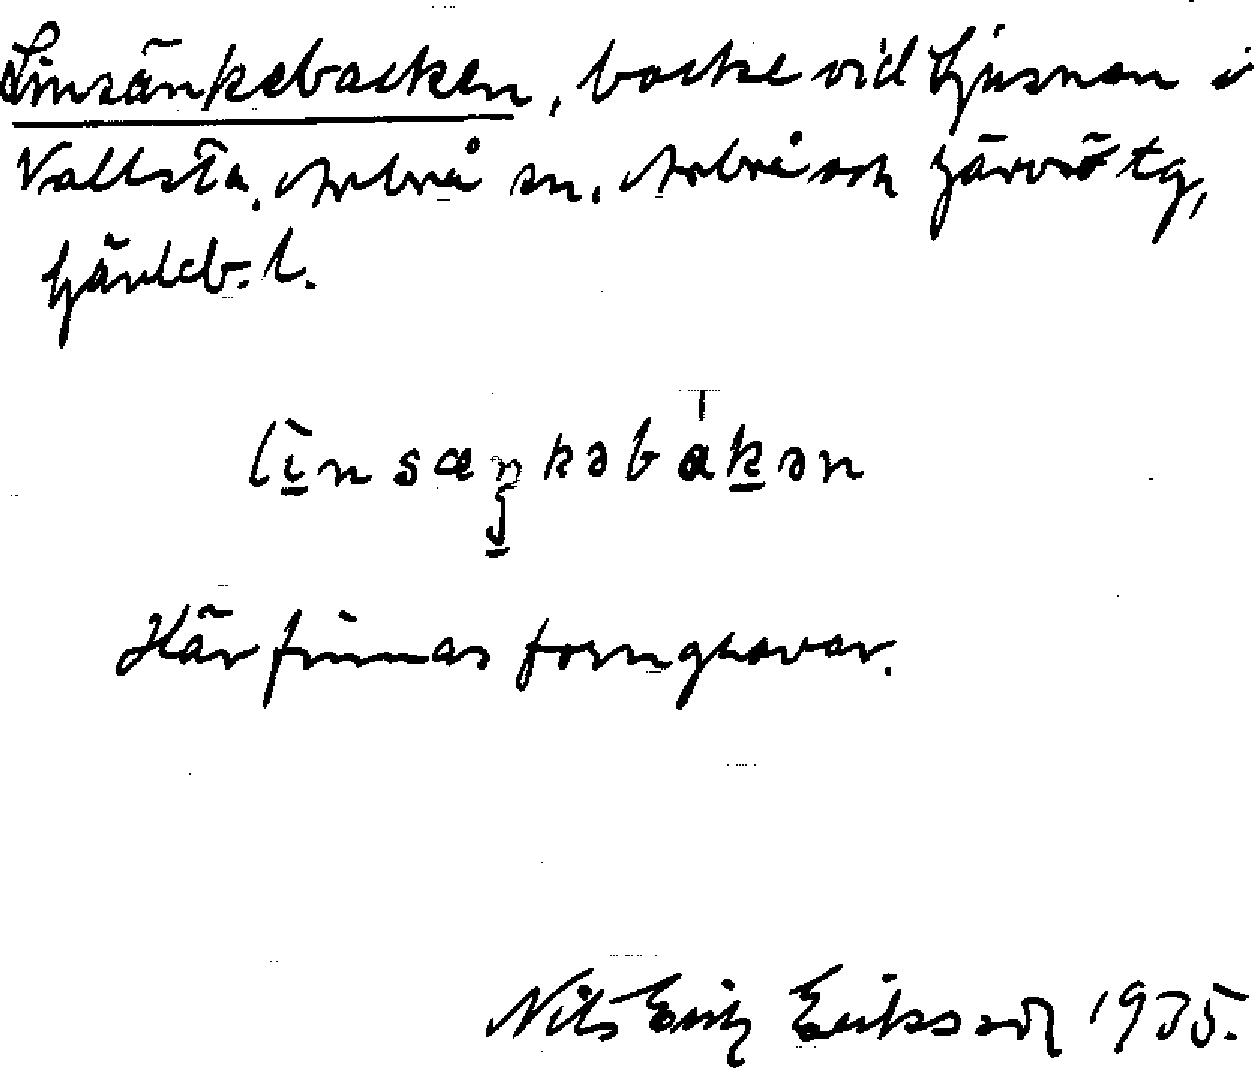 Linsänkebacken, backe vid Ljusnan i
Vallsta, Arbrå sn. Arbrå och Järvsö tg,
Gävleb. l.
linsæŋkəbakən
Här finnas forngravar.
Nils Erik Eriksson 1935.